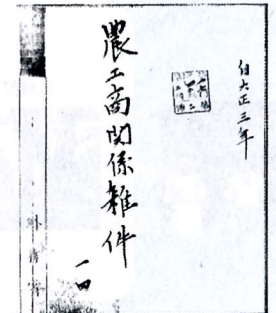 自大正三年
農工商関係雑件
一四
外務省